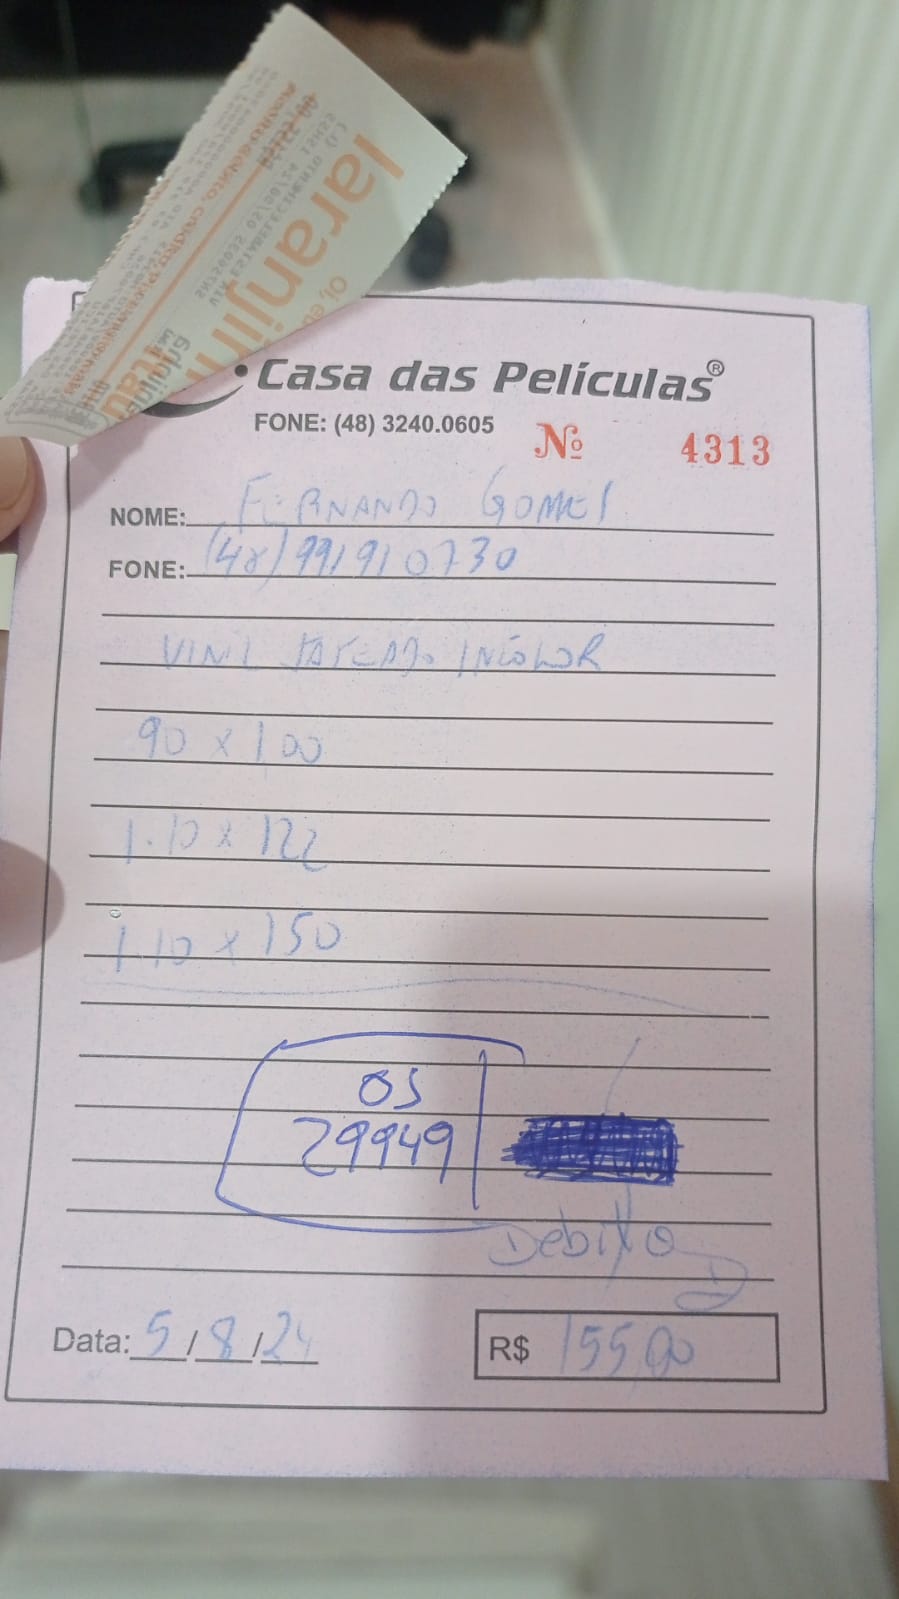 Casa das Películas®
FONE: (48) 3240.0605
Nº 4313
NOME: FERNANDO GOMES
FONE: (48) 991910730
VINIL JATEADO INCOLOR
90 x 100
1.10 x 122
1.10 x 150
OS
29949
Debito
Data: 5/8/24
R$ 155,00
laranjinha
Itaú
VIA ESTABELECIMENTO